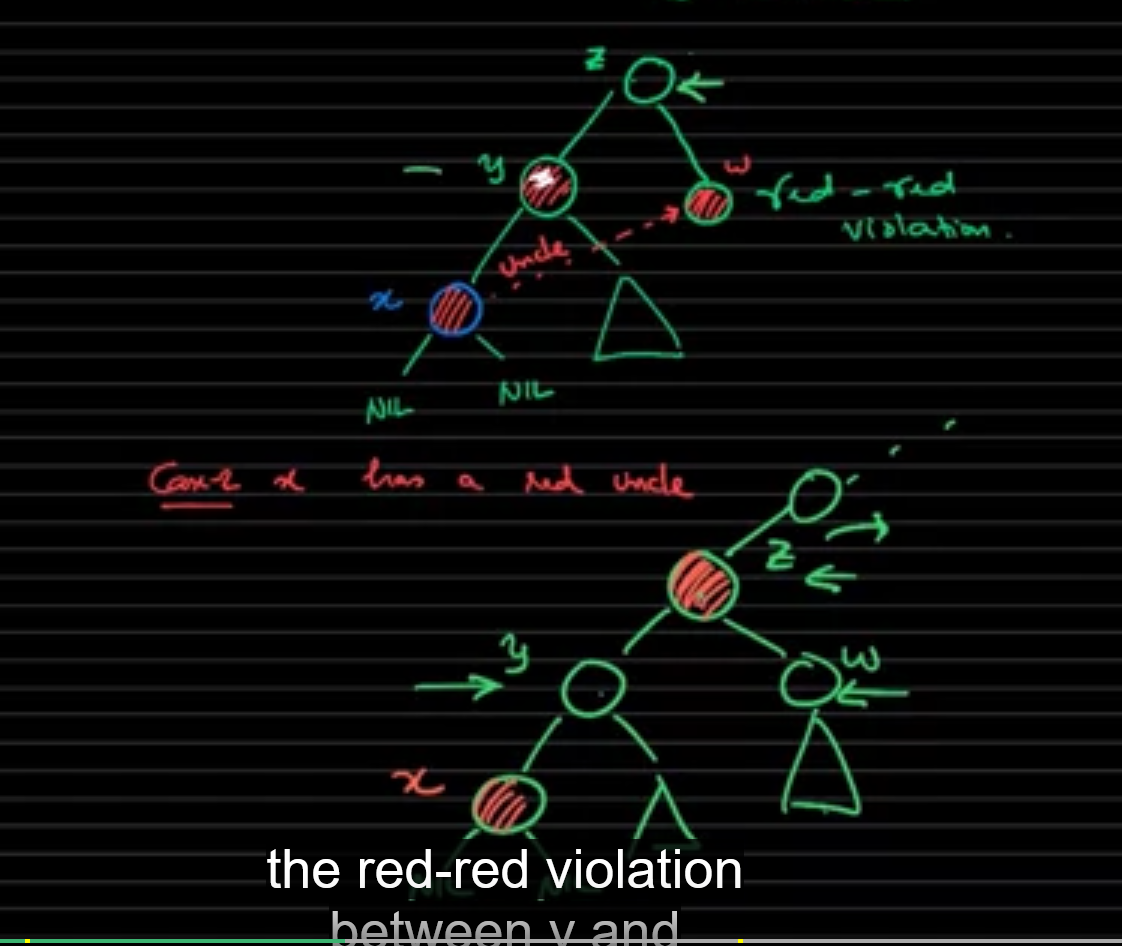 z
y
w
red - red
violation.
uncle
x
NIL
NIL
x has a red uncle
z
y
w
x
the red-red violation
between y and